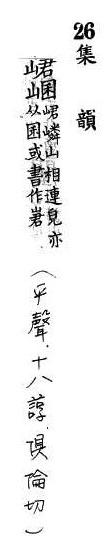 26 集韻
峮㟒峮嶙山相連皃亦
从囷或書作
（平聲．十八諄．俱倫切）